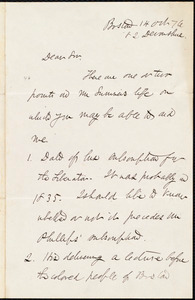 Boston 14 Oct. 76
12 Devonshire
Dear Sir
Here are one or two
points in Mr Sumner's life on
which you may be able to aid
me.
1. Date of his subscription for
the Liberator. It was probably in
1835. I should like to know
whether or not it precedes Mr
Phillips' subscription.
2. His delivering a lecture before
the colored people of Boston